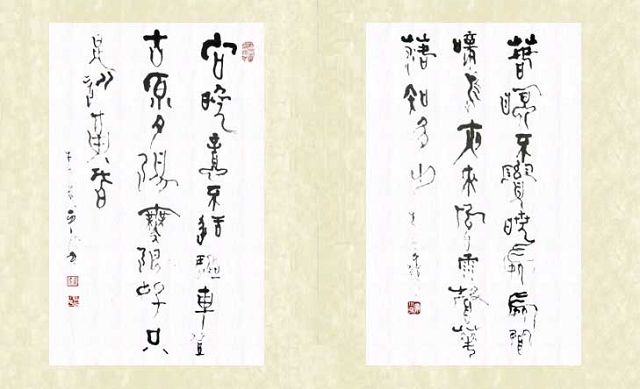 春眠不覺曉處處聞
啼鳥夜來風雨聲華
落知多少
向晚意不適驅車登
古原夕陽無限好只
是近黃昏